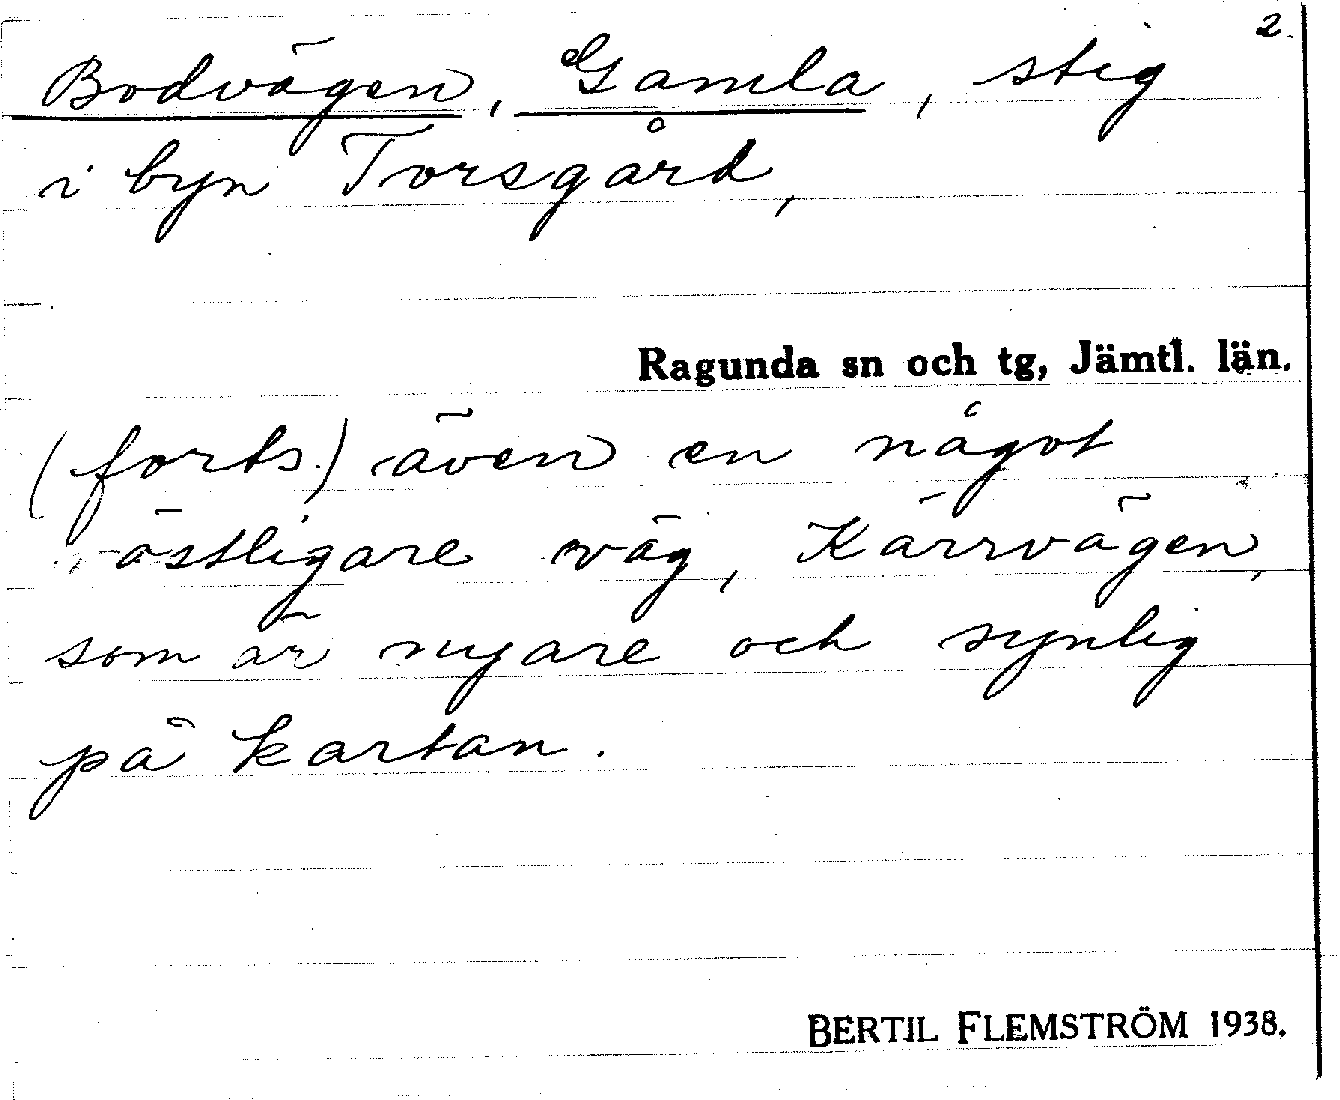 2.
Bodvägen, Gamla, stig
i byn Torsgård,
Ragunda sn och tg, Jämtl. län.
(forts.) även en något
östligare väg, Kärrvägen,
som är nyare och synlig
på kartan.
BERTIL FLEMSTRÖM 1938.